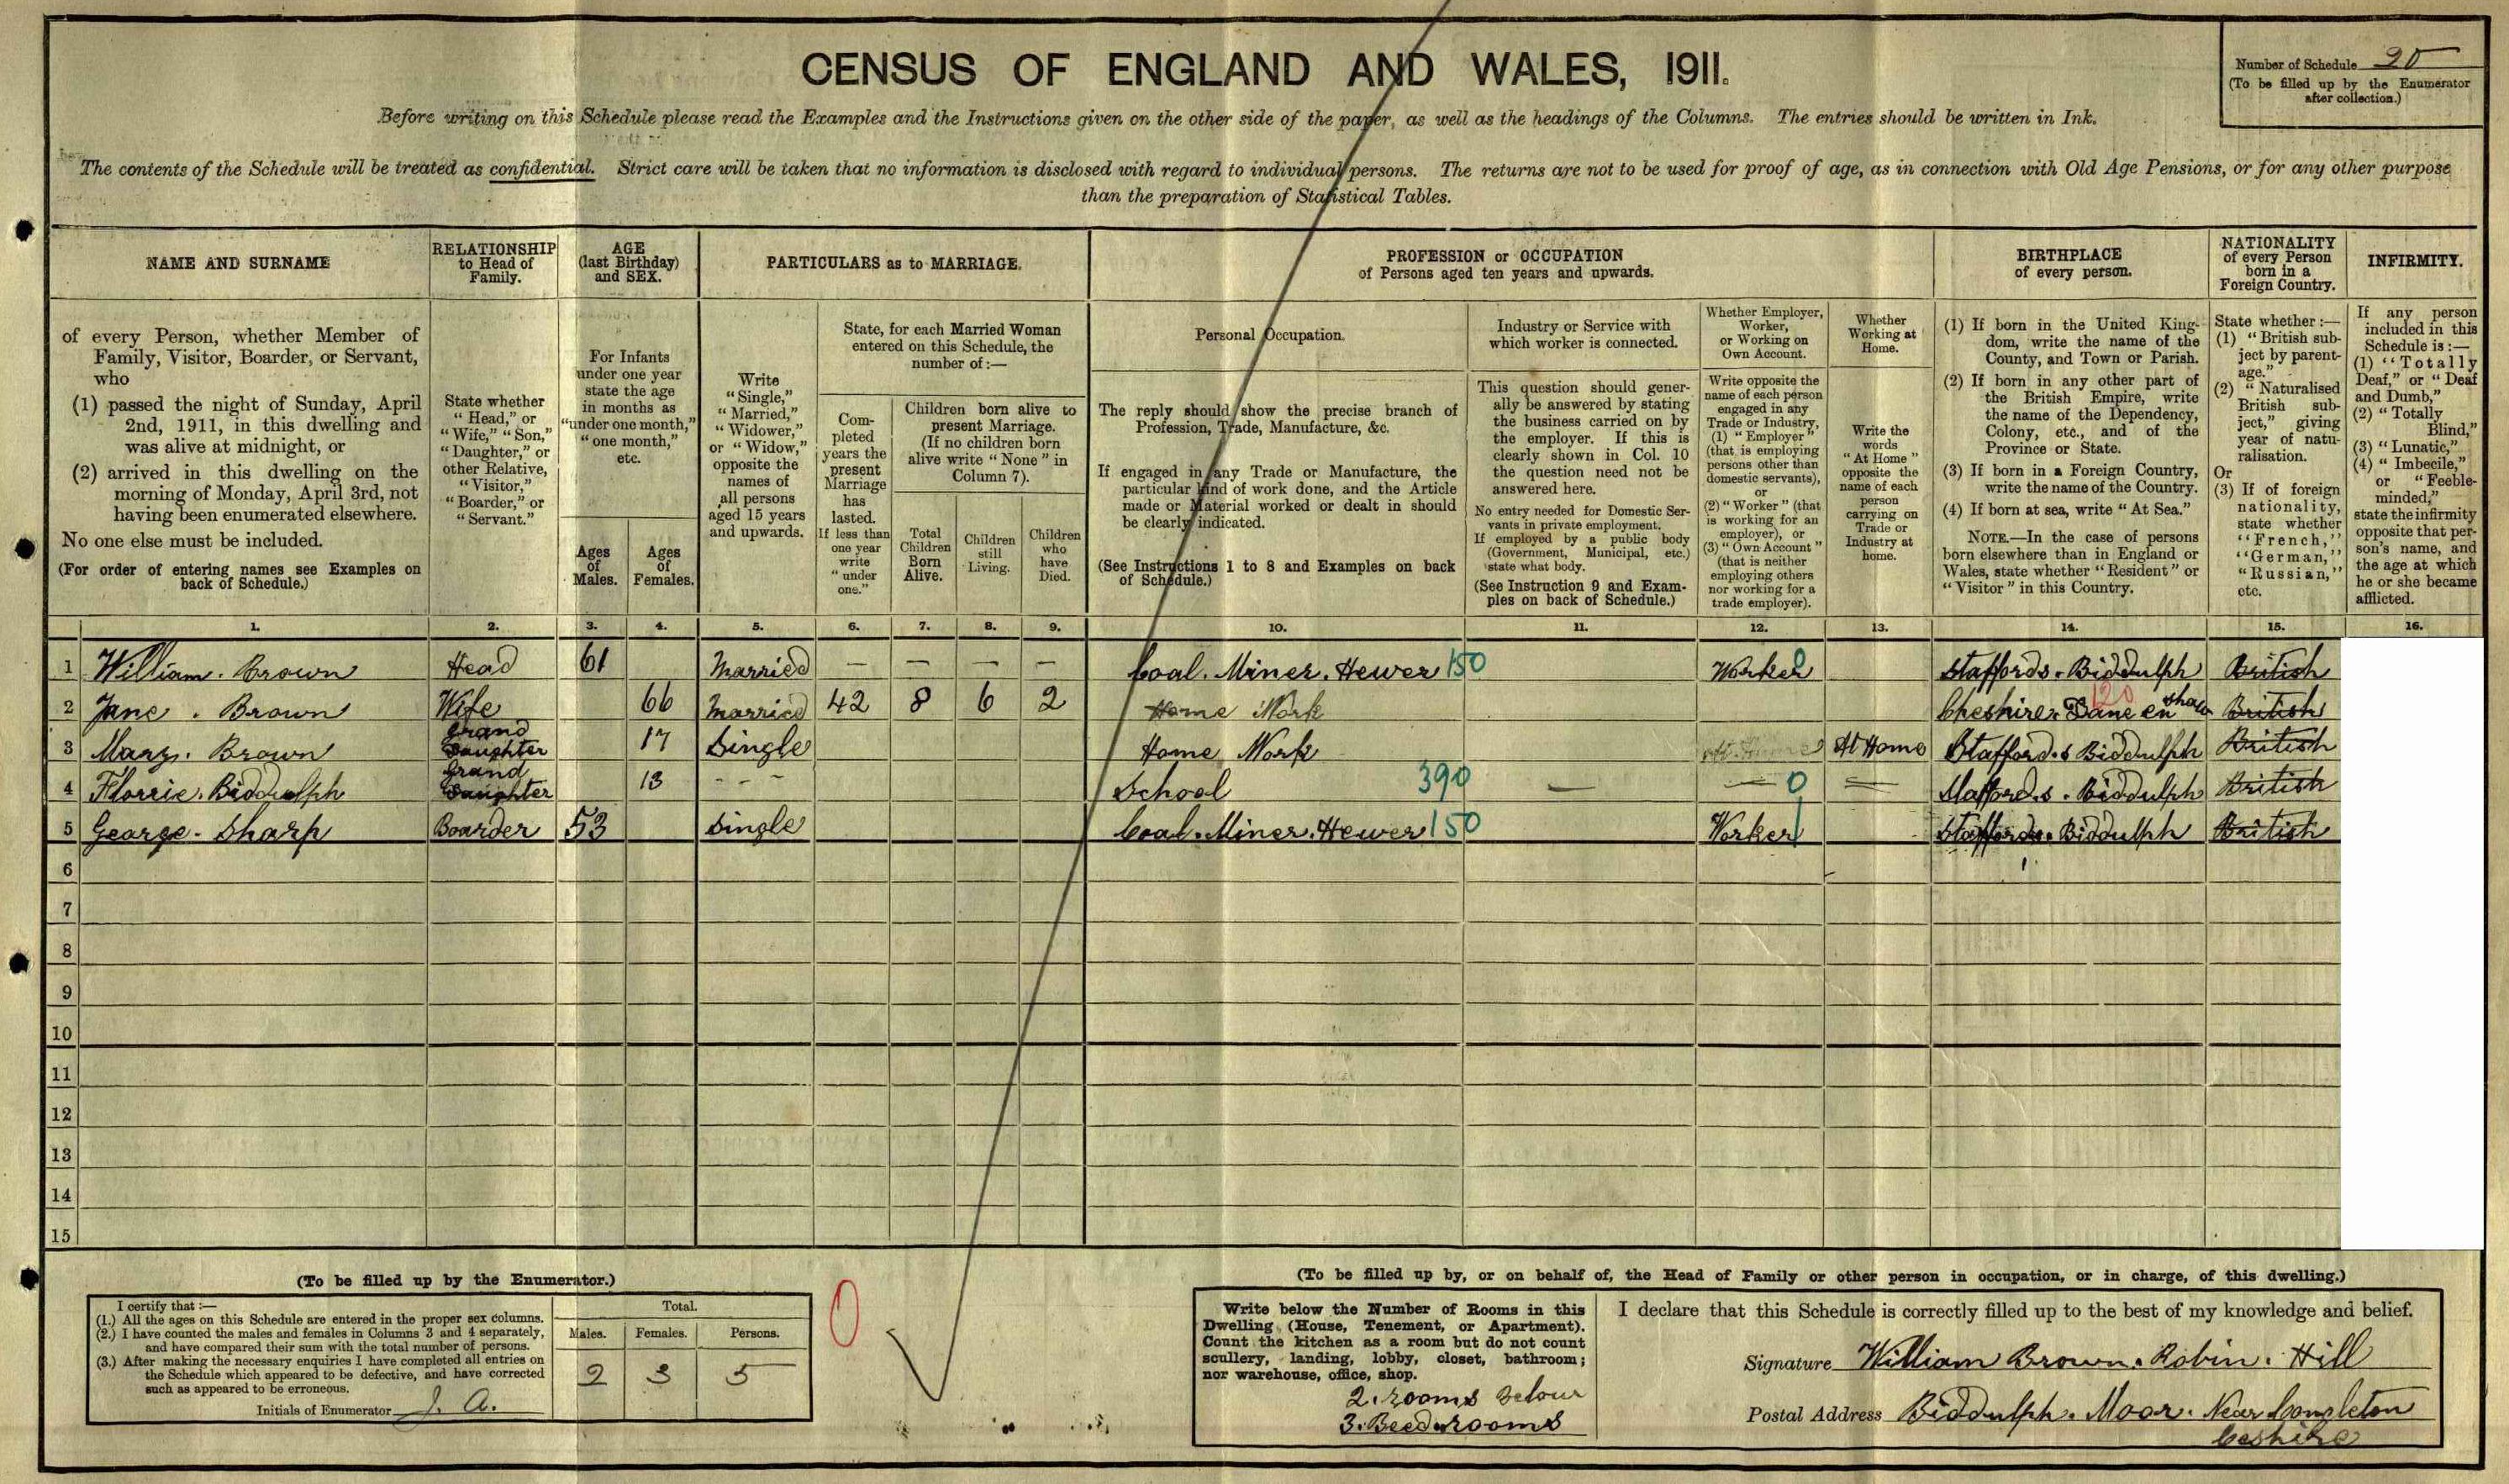 CENSUS OF ENGLAND AND WALES, 1911.
Number of Schedule 20
(To be filled up by the Enumerator
after collection.)
Before writing on this Schedule please read the Examples and the Instructions given on the other side of the paper, as well as the headings of the Columns. The entries should be written in Ink.
The contents of the Schedule will be treated as confidential. Strict care will be taken that no information is disclosed with regard to individual persons. The returns are not to be used for proof of age, as in connection with Old Age Pensions, or for any other purpose
than the preparation of Statistical Tables.
NAME AND SURNAME
of every Person, whether Member of
Family, Visitor, Boarder, or Servant,
who
(1) passed the night of Sunday, April
2nd, 1911, in this dwelling and
was alive at midnight, or
(2) arrived in this dwelling on the
morning of Monday, April 3rd, not
having been enumerated elsewhere.
No one else must be included.
(For order of entering names see Examples on
back of Schedule.)
RELATIONSHIP
to Head of
Family.
State whether
"Head," or
"Wife," "Son,"
"Daughter," or
other Relative,
"Visitor,"
"Boarder," or
"Servant."
AGE
(last Birthday)
and SEX.
For Infants
under one year
state the age
in months as
"under one month,"
"one month,"
etc.
Ages
of
Males.
Ages
of
Females.
PARTICULARS as to MARRIAGE.
Write
"Single,"
"Married,"
"Widower,"
or "Widow,"
opposite the
names of
all persons
aged 15 years
and upwards.
State, for each Married Woman
entered on this Schedule, the
number of:—
Com-
pleted
years the
present
Marriage
has
lasted.
If less than
one year
write
"under
one."
Children born alive to
present Marriage.
(If no children born
alive write "None" in
Column 7).
Total
Children
Born
Alive.
Children
still
Living.
Children
who
have
Died.
PROFESSION or OCCUPATION
of Persons aged ten years and upwards.
Personal Occupation.
The reply should show the precise branch of
Profession, Trade, Manufacture, &c.
If engaged in any Trade or Manufacture, the
particular kind of work done, and the Article
made or Material worked or dealt in should
be clearly indicated.
(See Instructions 1 to 8 and Examples on back
of Schedule.)
Industry or Service with
which worker is connected.
This question should gener-
ally be answered by stating
the business carried on by
the employer. If this is
clearly shown in Col. 10
the question need not be
answered here.
No entry needed for Domestic Ser-
vants in private employment.
If employed by a public body
(Government, Municipal, etc.)
state what body.
(See Instruction 9 and Exam-
ples on back of Schedule.)
Whether Employer,
Worker,
or Working on
Own Account.
Write opposite the
name of each person
engaged in any
Trade or Industry,
(1) "Employer"
(that is employing
persons other than
domestic servants),
or
(2) "Worker" (that
is working for an
employer), or
(3) "Own Account"
(that is neither
employing others
nor working for a
trade employer).
Whether
Working at
Home.
Write the
words
"At Home"
opposite the
name of each
person
carrying on
Trade or
Industry at
home.
BIRTHPLACE
of every person.
(1) If born in the United King-
dom, write the name of the
County, and Town or Parish.
(2) If born in any other part of
the British Empire, write
the name of the Dependency,
Colony, etc., and of the
Province or State.
(3) If born in a Foreign Country,
write the name of the Country.
(4) If born at sea, write "At Sea."
NOTE.—In the case of persons
born elsewhere than in England or
Wales, state whether "Resident" or
"Visitor" in this Country.
NATIONALITY
of every Person
born in a
Foreign Country.
State whether:—
(1) "British sub-
ject by parent-
age."
(2) "Naturalised
British sub-
ject," giving
year of natu-
ralisation.
Or
(3) If of foreign
nationality,
state whether
"French,"
"German,"
"Russian,"
etc.
INFIRMITY.
If any person
included in this
Schedule is:—
(1) "Totally
Deaf," or "Deaf
and Dumb,"
(2) "Totally
Blind,"
(3) "Lunatic,"
(4) "Imbecile,"
or "Feeble-
minded,"
state the infirmity
opposite that per-
son's name, and
the age at which
he or she became
afflicted.
1. 2. 3. 4. 5. 6. 7. 8. 9. 10. 11. 12. 13. 14. 15. 16.
1 William. Brown Head 61 Married — — — — Coal. Miner. Hewer 150 Worker 0 Staffords. Biddulph British
2 Jane. Brown Wife 66 Married 42 8 6 2 Home Work Cheshire. Dane en shaw 120 British
3 Mary. Brown Grand Daughter 17 Single Home Work At Home Stafford.s Biddulph British
4 Florrie. Biddulph Grand Daughter 13 - - - School 390 — — 0 Stafford.s. Biddulph British
5 George. Sharp Boarder 53 Single Coal. Miner. Hewer 150 Worker Staffords. Biddulph British
6
7
8
9
10
11
12
13
14
15
(To be filled up by the Enumerator.)
I certify that:—
(1.) All the ages on this Schedule are entered in the proper sex columns.
(2.) I have counted the males and females in Columns 3 and 4 separately,
and have compared their sum with the total number of persons.
(3.) After making the necessary enquiries I have completed all entries on
the Schedule which appeared to be defective, and have corrected
such as appeared to be erroneous.
Initials of Enumerator J. A.
Total.
Males. Females. Persons.
2 3 5
0
(To be filled up by, or on behalf of, the Head of Family or other person in occupation, or in charge, of this dwelling.)
Write below the Number of Rooms in this
Dwelling (House, Tenement, or Apartment).
Count the kitchen as a room but do not count
scullery, landing, lobby, closet, bathroom;
nor warehouse, office, shop.
2. rooms Belour
3. Beedrooms
I declare that this Schedule is correctly filled up to the best of my knowledge and belief.
Signature William Brown. Robin. Hill
Postal Address Biddulph. Moor. Near Congleton
Ceshire